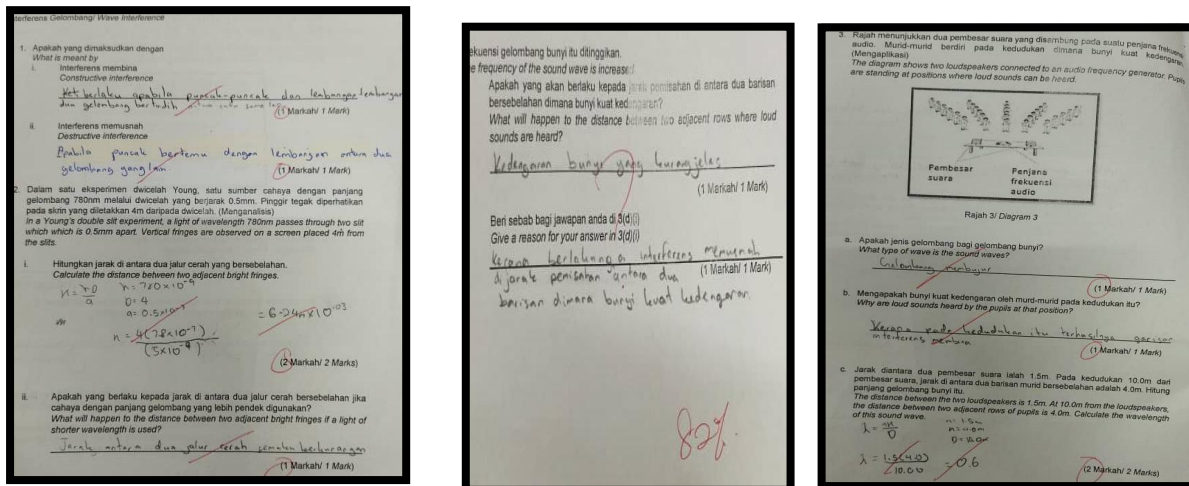 terferens Gelombang/ Wave Interference
1. Apakah yang dimaksudkan dengan
What is meant by
i. Interferens membina
Constructive interference
berlaku apabila puncak-puncak dan lembangan lembangan
dua gelombang bertindih
(1 Markah/ 1 Mark)
ii. Interferens memusnah
Destructive interference
Apabila puncak bertemu dengan lembangan antara dua
gelombang yang lain
(1 Markah/ 1 Mark)
2. Dalam satu eksperimen dwicelah Young, satu sumber cahaya dengan panjang
gelombang 780nm melalui dwicelah yang berjarak 0.5mm. Pinggir tegak diperhatikan
pada skrin yang diletakkan 4m daripada dwicelah. (Manganalisis)
In a Young's double slit experiment, a light of wavelength 780nm passes through two slit
which which is 0.5mm apart. Vertical fringes are observed on a screen placed 4m from
the slits.
i. Hitungkan jarak di antara dua jalur cerah yang bersebelahan.
Calculate the distance between two adjacent bright fringes.
x = λD/a λ = 780×10⁻⁹
D = 4
a = 0.5×10⁻³
x = 4(7.8×10⁻⁷)/(5×10⁻⁴) = 6.24×10⁻⁰³
(2 Markah/ 2 Marks)
ii. Apakah yang berlaku kepada jarak di antara dua jalur cerah bersebelahan jika
cahaya dengan panjang gelombang yang lebih pendek digunakan?
What will happen to the distance between two adjacent bright fringes if a light of
shorter wavelength is used?
Jarak antara dua jalur cerah semakin berkurangan
(1 Markah/ 1 Mark)
ekuensi gelombang bunyi itu ditinggikan.
e frequency of the sound wave is increase
Apakah yang akan berlaku kepada jarak pemisahan di antara dua barisan
bersebelahan dimana bunyi kuat kedengaran?
What will happen to the distance between two adjacent rows where loud
sounds are heard?
Kedengaran bunyi yang kurang jelas
(1 Markah/ 1 Mark)
Beri sebab bagi jawapan anda di 3(d)(i)
Give a reason for your answer in 3(d)(i)
Kerana berlakunya interferens memusnah
di jarak pemisahan antara dua
(1 Markah/ 1 Mark)
barisan dimana bunyi kuat kedengaran.
82%
3. Rajah menunjukkan dua pembesar suara yang disambung pada suatu penjana frekuensi
audio. Murid-murid berdiri pada kedudukan dimana bunyi kuat kedengaran
(Mengaplikasi)
The diagram shows two loudspeakers connected to an audio frequency generator. Pupils
are standing at positions where loud sounds can be heard.
Pembesar suara
Penjana frekuensi audio
Rajah 3/ Diagram 3
a. Apakah jenis gelombang bagi gelombang bunyi?
What type of wave is the sound waves?
Gelombang membujur
(1 Markah/ 1 Mark)
b. Mengapakah bunyi kuat kedengaran oleh murd-murid pada kedudukan itu?
Why are loud sounds heard by the pupils at that position?
Kerana pada kedudukan itu terhasilnya garisan
interferens membina
(1 Markah/ 1 Mark)
c. Jarak diantara dua pembesar suara ialah 1.5m. Pada kedudukan 10.0m dari
pembesar suara, jarak di antara dua barisan murid bersebelahan adalah 4.0m. Hitung
panjang gelombang bunyi itu.
The distance between the two loudspeakers is 1.5m. At 10.0m from the loudspeakers,
the distance between two adjacent rows of pupils is 4.0m. Calculate the wavelength
of this sound wave.
λ = ax/D
a = 1.5m
x = 4.0m
D = 10.0m
λ = 1.5(4.0)/10.00 = 0.6
(2 Markah/ 2 Marks)